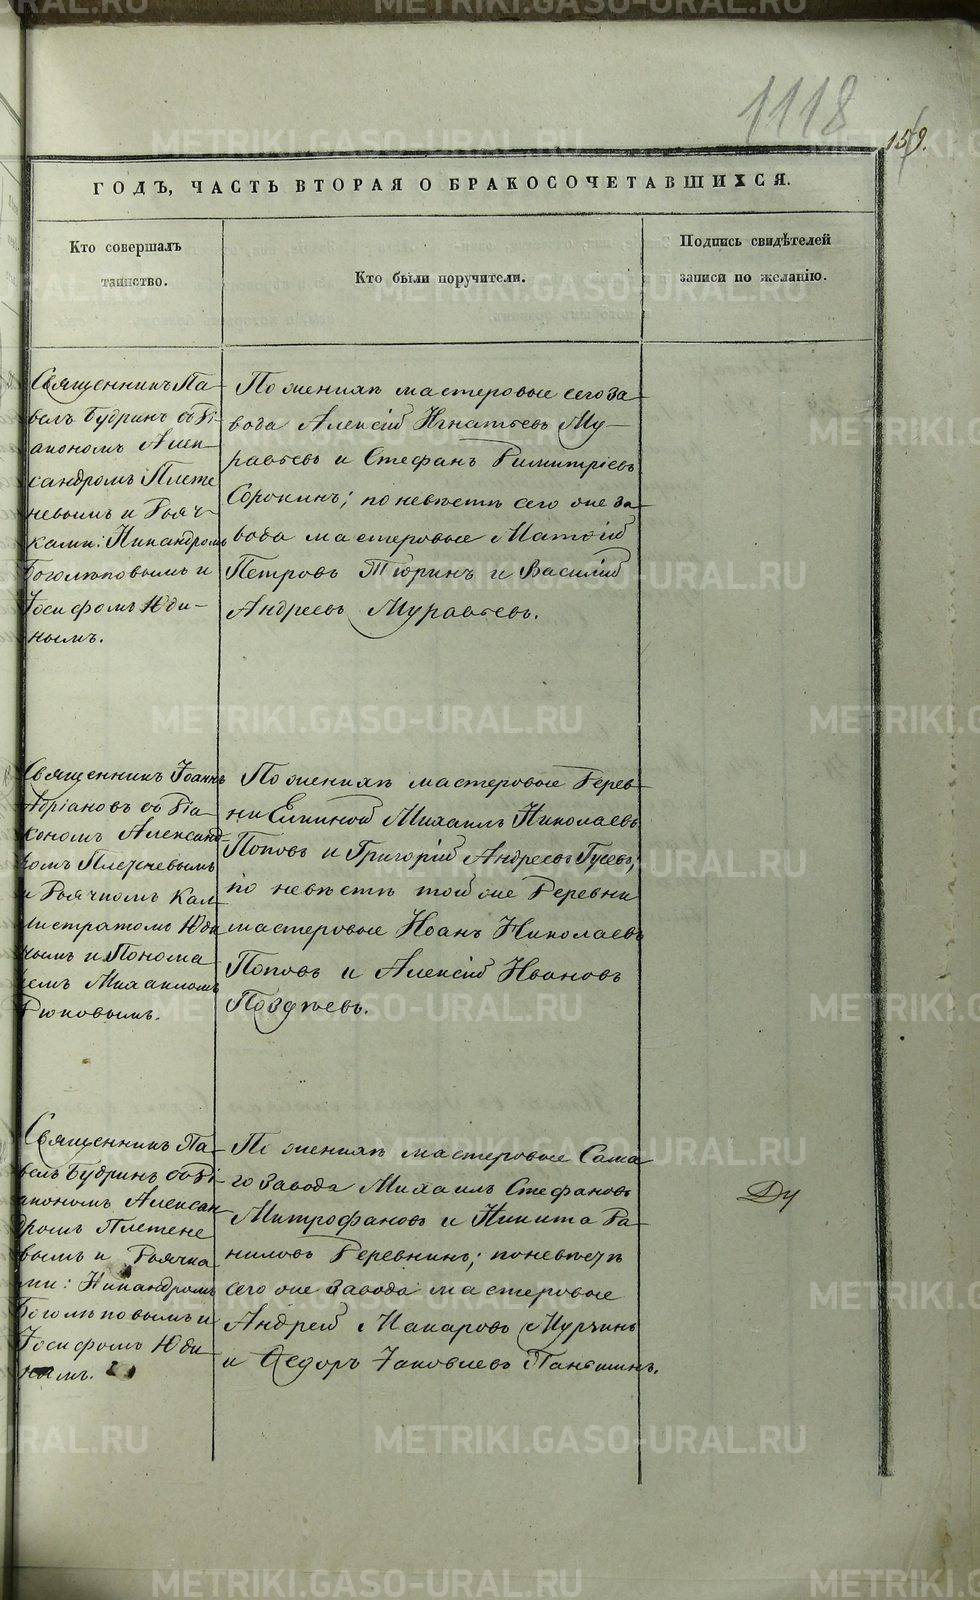 1118
159.
ГОДЪ, ЧАСТЬ ВТОРАЯ О БРАКОСОЧЕТАВШИХСЯ.
Кто совершалъ
таинство.
Кто были поручители.
Подпись свидѣтелей
записи по желанію.
Священникъ Па-
велъ Будринъ съ Ді-
акономъ Алек-
сандромъ Плете
невымъ и Дьяч-
ками: Никандромъ
Боголѣповымъ и
Іосифомъ Юди-
нымъ.
По женихѣ мастеровые сего за-
вода Алексій Игнатьевъ Му-
равьевъ и Стефанъ Димитріевъ
Сорокинъ; по невѣстѣ сего же за-
вода мастеровые Матѳій
Петровъ Тюринъ и Василій
Андреевъ Муравьевъ.
Священникъ Іоаннъ
Адріановъ съ Діа-
кономъ Александ-
ромъ Плетеневымъ
и Дьячкомъ Кал-
листратомъ Юди
нымъ и Понома
ремъ Михаиломъ
По женихѣ мастеровые Дерев-
ни Елкиной Михаилъ Николаевъ
Поповъ и Григорій Андреевъ Гусевъ;
по невѣстѣ той же Деревни
мастеровые Иоанъ Николаевъ
Поповъ и Алексій Ивановъ
Поздѣевъ.
Священникъ Па-
велъ Будринъ съ Ді-
акономъ Алексан
дромъ Плетене
вымъ и Дьячка
ми: Никандромъ
Боголѣповымъ и
Іосифомъ Юди
нымъ.
По женихѣ мастеровые Сама
го Завода Михаилъ Стефановъ
Митрофановъ и Никита Да-
ниловъ Деревнинъ; по невѣстѣ
сего же Завода мастеровые
Андрей Макаровъ Мурчинъ
и Ѳедоръ Іаковлевъ Паньшинъ.
METRIKI.GASO-URAL.RU